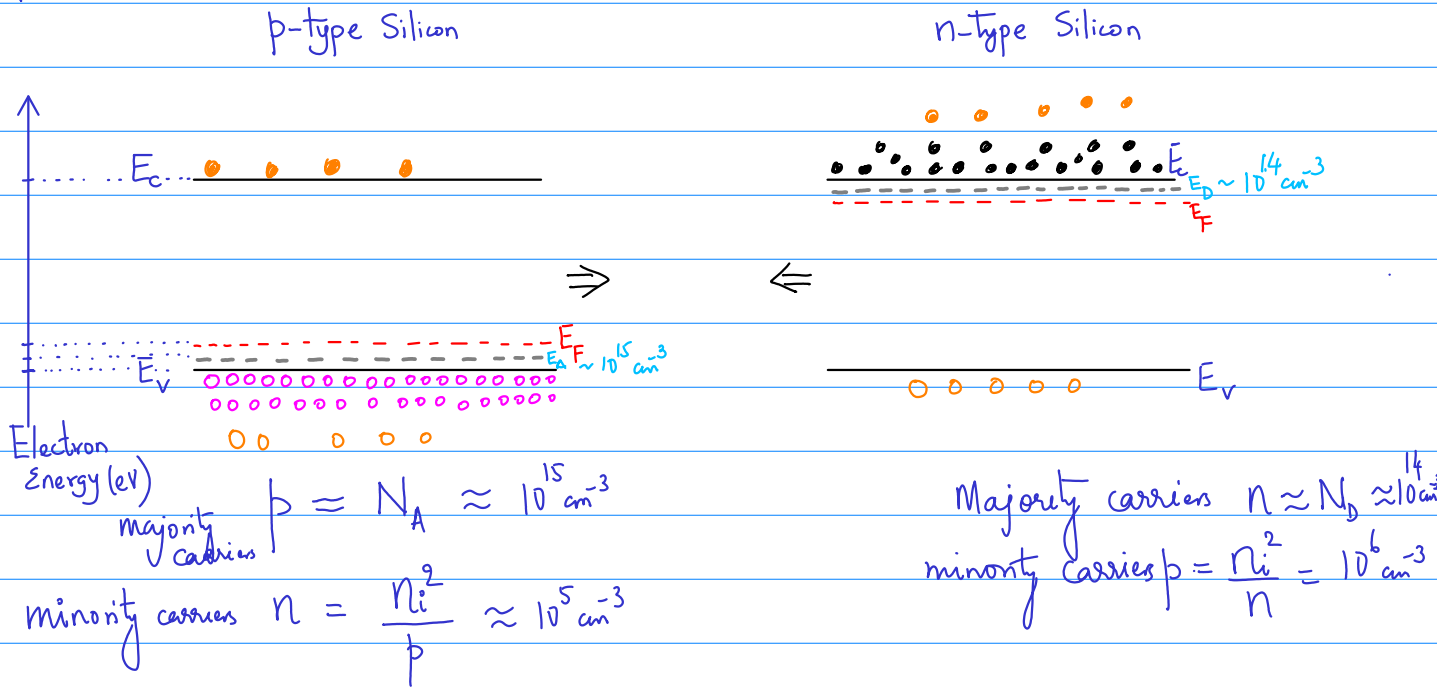 p-type Silicon
n-type Silicon
E_c
E_c
E_D ~ 10^14 cm^-3
E_F
E_F
E_A ~ 10^15 cm^-3
E_v
E_v
Electron
Energy (eV)
majority
carriers
p = N_A ≈ 10^15 cm^-3
Majority carriers n ≈ N_D ≈ 10^14 cm^-3
minority carriers n = n_i^2 / p ≈ 10^5 cm^-3
minority carries p = n_i^2 / n = 10^6 cm^-3